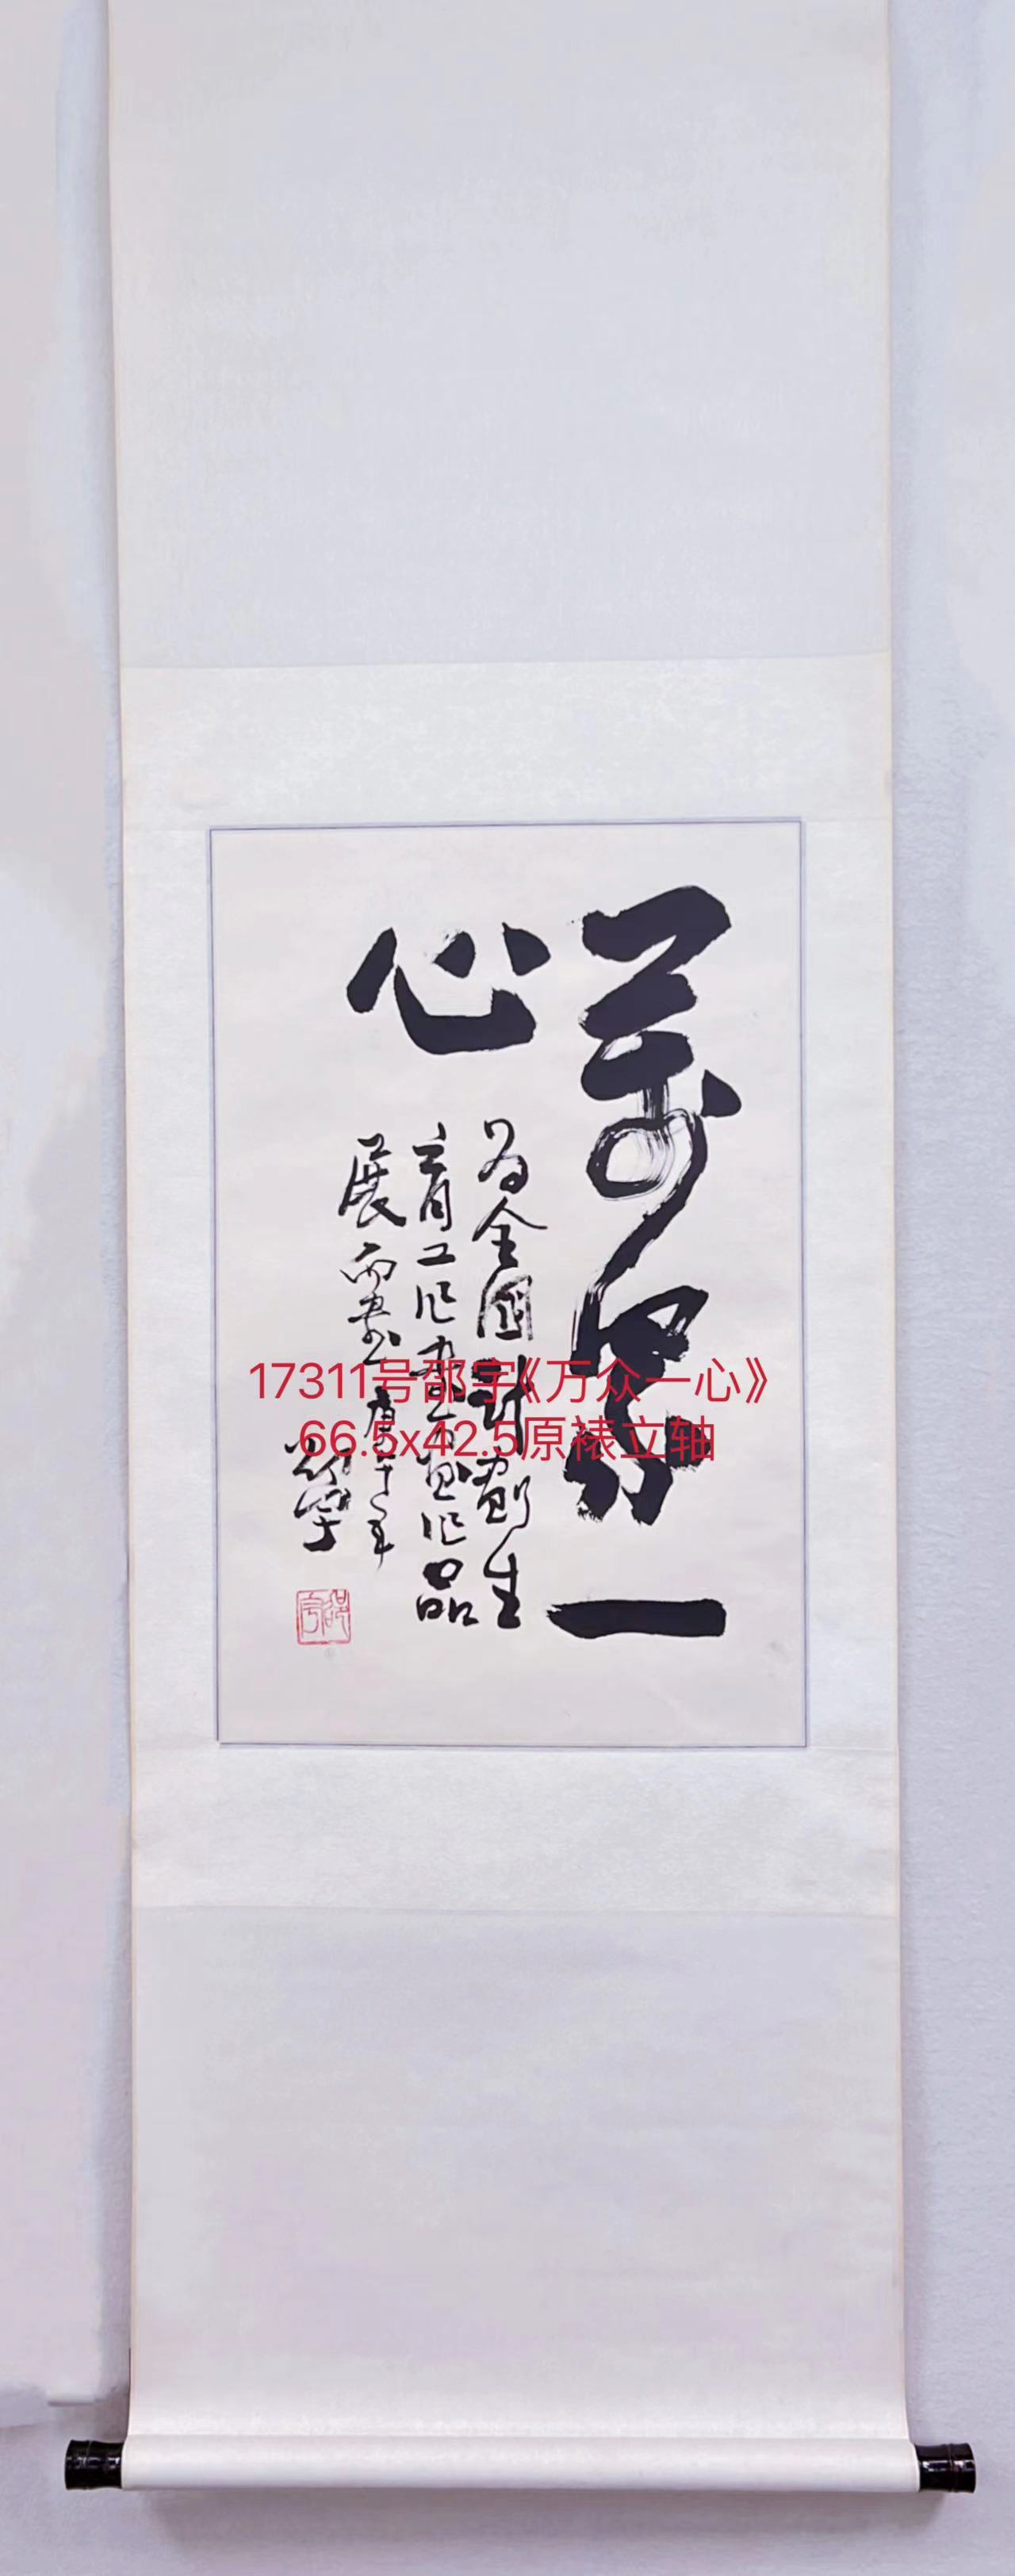 萬衆一
心
为全國計劃生
育工作书画作品
展而书 庚午年
邵宇
邵宇
17311号邵宇《万众一心》
66.5x42.5原裱立轴